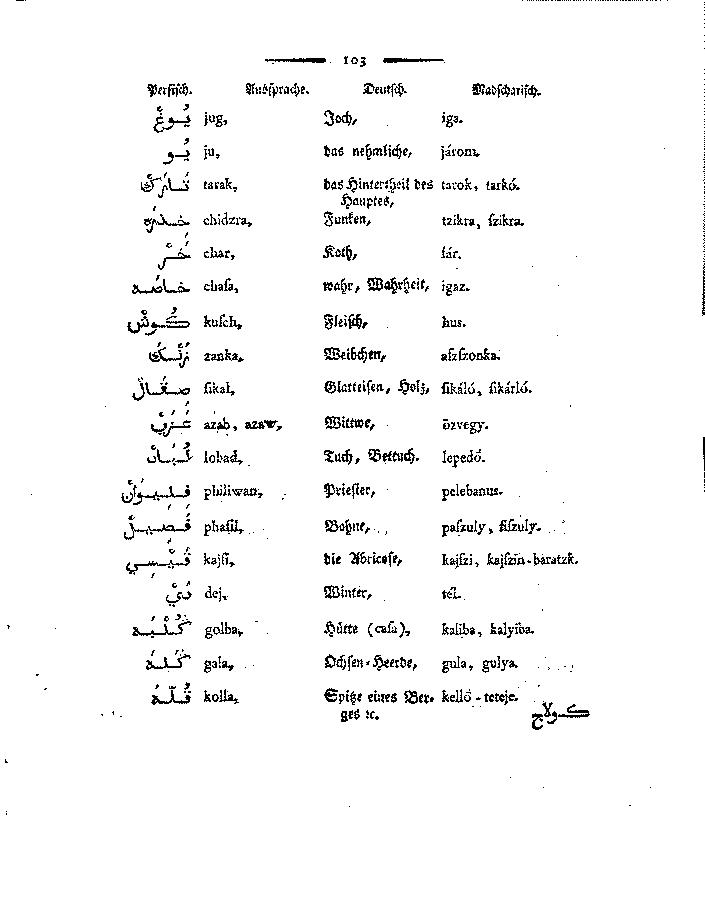 103
Persisch. Aussprache. Deutsch. Madscharisch.
يُوغْ jug, Joch, iga.
يُو ju, das nehmliche, járom.
تَارَكْ tarak, das Hintertheil des tarok, tarkó.
Hauptes,
chidzra, Funken, tzikra, ſzikra.
خَرْ char, Koth, ſár.
خاصه chaſa, wahr, Wahrheit, igaz.
كُوشْ kuſch, Fleiſch, hus.
zanka, Weibchen, aſzſzonka.
صقال ſikal, Glatteiſen, Holz, ſikáló, ſikárló.
عزب azab, azaw, Wittwe, özvegy.
لُبَادْ lobad, Tuch, Bettuch. lepedő.
فليوان philiwan, Prieſter, pelebanus.
فصيل phaſil, Bohne, paſzuly, fiſzuly.
قيسي kajſi, die Abricoſe, kajſzi, kajſzin-baratzk.
دي dej, Winter, tél.
كُلْبَه golba, Hütte (caſa), kaliba, kalyiba.
كَلَه gala, Ochſen-Heerde, gula, gulya.
قُلَّه kolla, Spitze eines Ber- kellő-teteje.
ges ꝛc.
كولاج